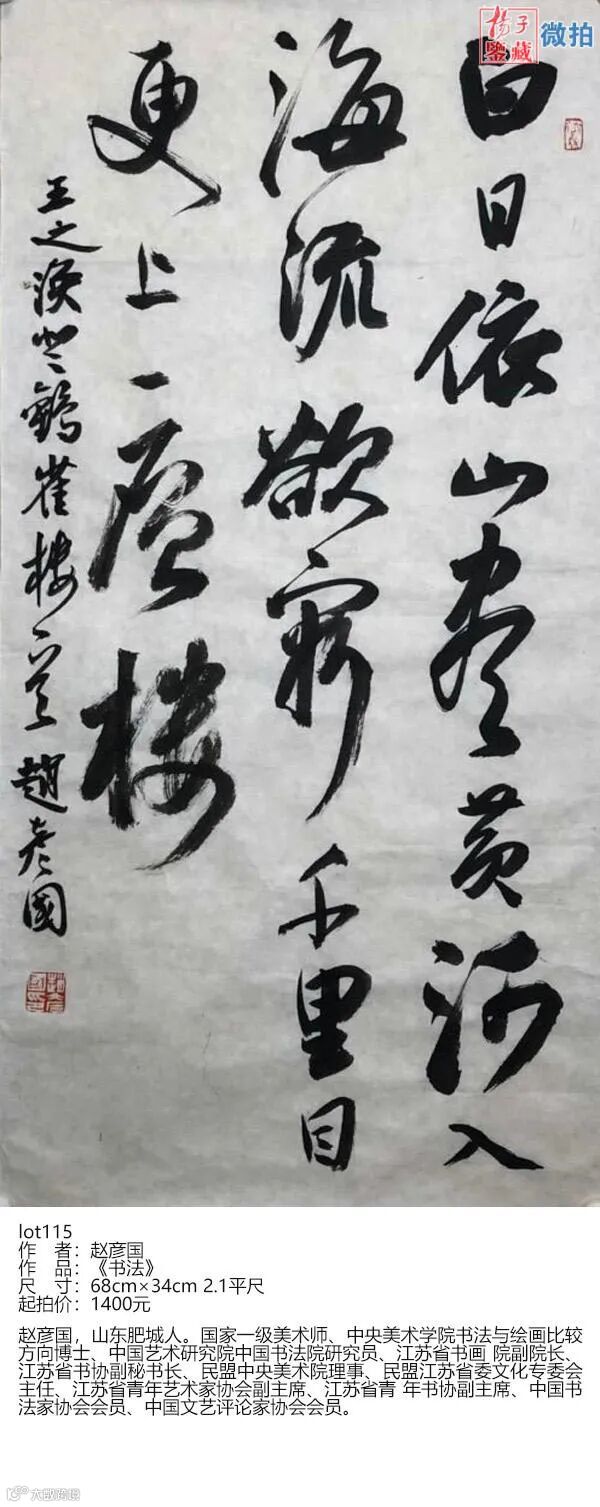 揚子 微拍
鑒藏
白日依山盡黄河入
海流欲窮千里目
更上一層樓
王之渙登鸛雀樓一首 趙彦國
lot115
作 者：赵彦国
作 品：《书法》
尺 寸：68cm×34cm 2.1平尺
起拍价：1400元
赵彦国，山东肥城人。国家一级美术师、中央美术学院书法与绘画比较
方向博士、中国艺术研究院中国书法院研究员、江苏省书画 院副院长、
江苏省书协副秘书长、民盟中央美术院理事、民盟江苏省委文化专委会
主任、江苏省青年艺术家协会副主席、江苏省青 年书协副主席、中国书
法家协会会员、中国文艺评论家协会会员。
大数跨境